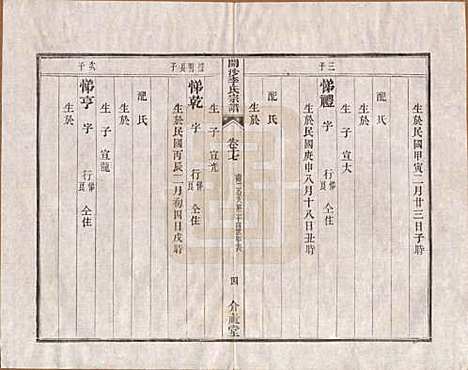 生於民國甲寅二月廿三日子時
配 氏
生於
生子 宣大
三子
悌禮 字 行 仝住
生於民國庚申八月十八日丑時
配 氏
生於
開沙李氏宗譜 卷十七 四 介祉堂
生子 宣光
長子
悌乾 字 行 仝住
生於民國丙辰二月初四日戌時
配 氏
生於
生子 宣龍
次子
悌亨 字 行 仝住
生於